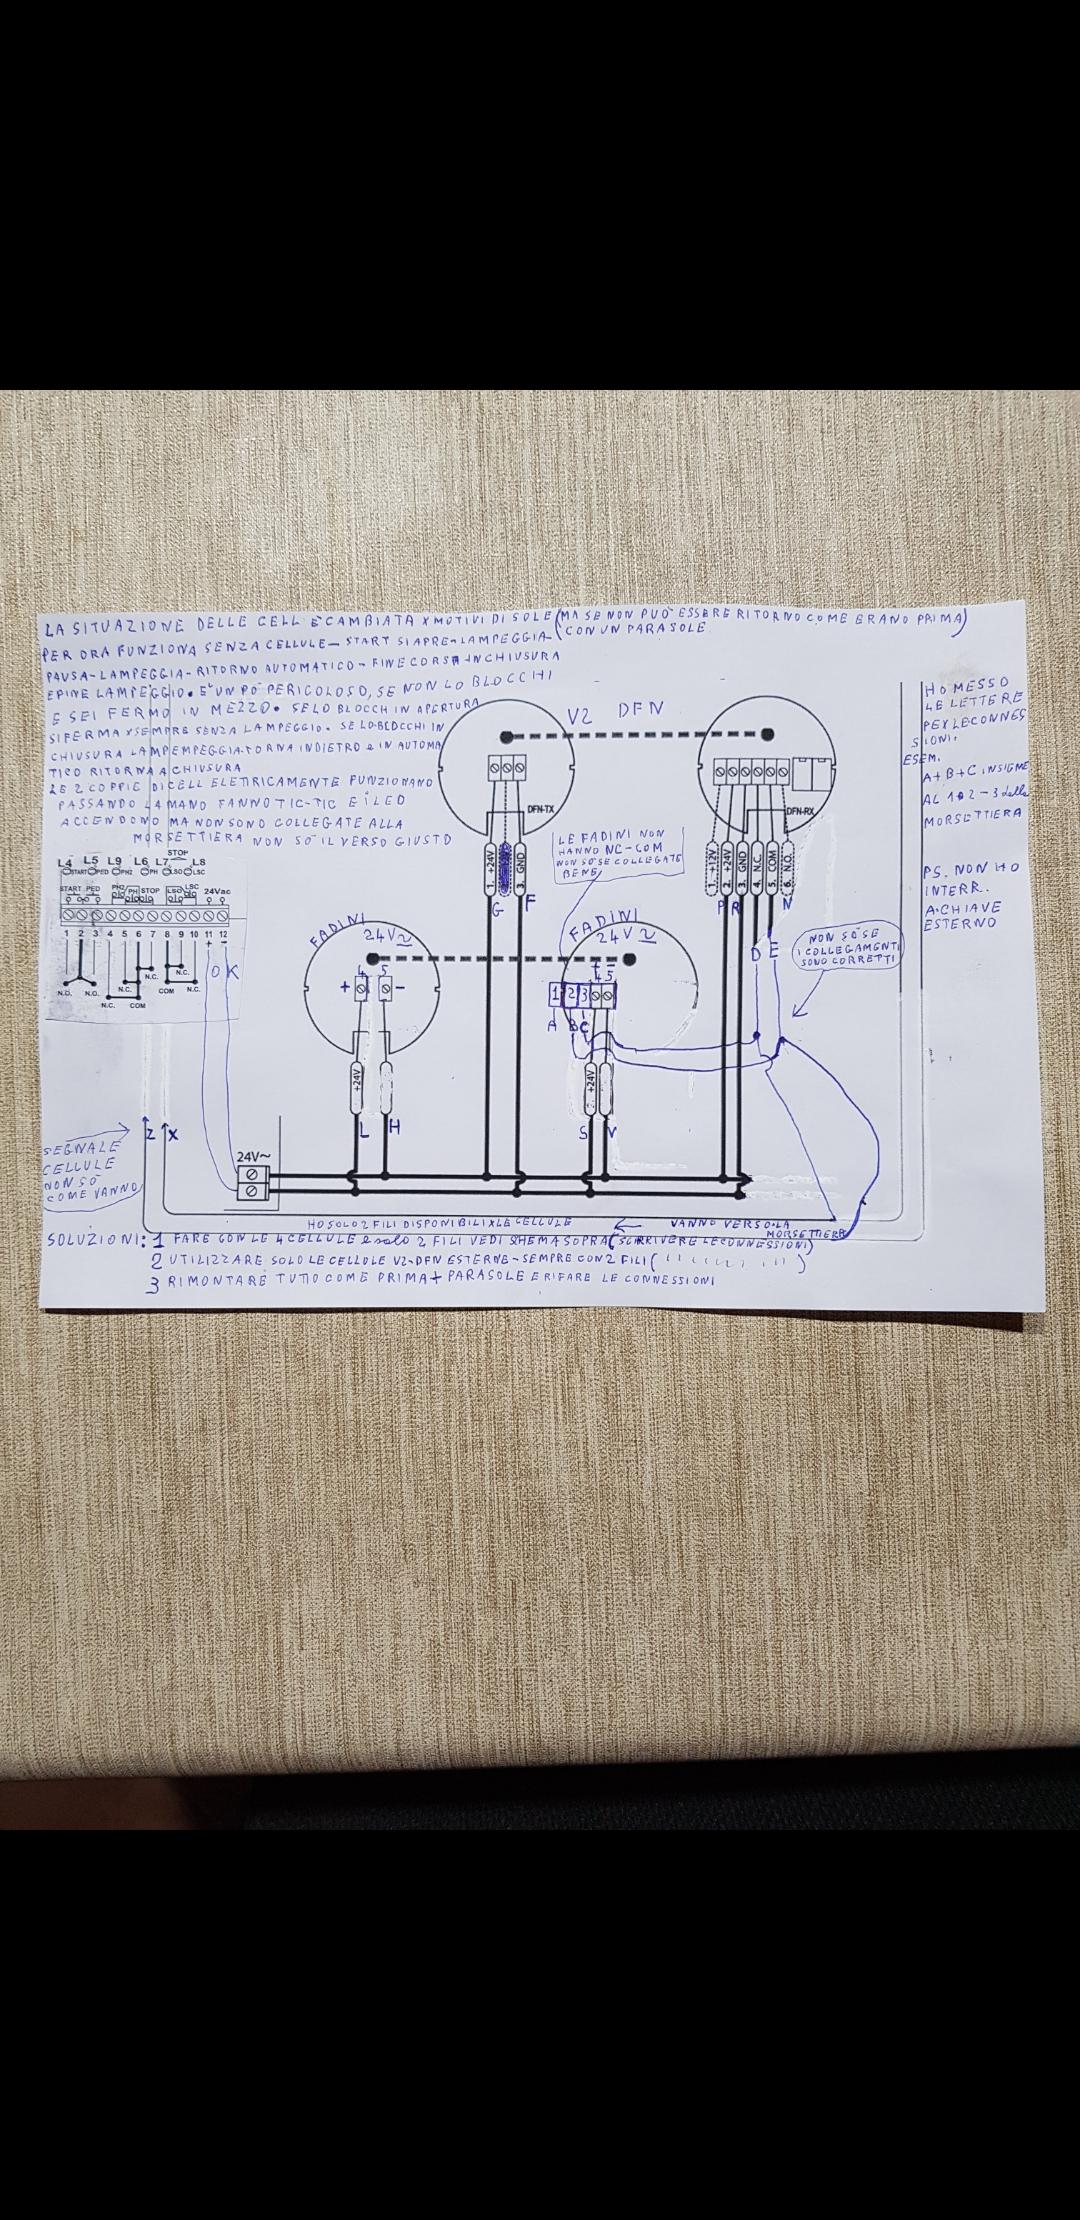 LA SITUAZIONE DELLE CELL È CAMBIATA X MOTIVI DI SOLE (MA SE NON PUO' ESSERE RITORNO COME ERANO PRIMA)
PER ORA FUNZIONA SENZA CELLULE - START SI APRE - LAMPEGGIA - (CON UN PARASOLE
PAUSA - LAMPEGGIA - RITORNO AUTOMATICO - FINE CORSA IN CHIUSURA
E FINE LAMPEGGIO. E' UN PO PERICOLOSO, SE NON LO BLOCCHI
E SEI FERMO IN MEZZO. SE LO BLOCCHI IN APERTURA
SI FERMA X SEMPRE SENZA LAMPEGGIO. SE LO BLOCCHI IN
CHIUSURA TORNA INDIETRO e IN AUTOMA
TICO RITORNA A CHIUSURA
LE 2 COPPIE DI CELL ELETRICAMENTE FUNZIONANO
PASSANDO LA MANO FANNO TIC-TIC E I LED
ACCENDONO MA NON SONO COLLEGATE ALLA
MORSETTIERA NON SO IL VERSO GIUSTO
V2 DFN
HO MESSO
LE LETTERE
PER LE CONNES
SIONI.
ESEM.
A+B+C INSIEME
AL 1 o 2 - 3 della
MORSETTIERA
PS. NON HO
INTERR.
A CHIAVE
ESTERNO
DFN-TX
DFN-RX
1. +24V
3. GND
G F
1. +12V
2. +24V
3. GND
4. N.C.
5. COM
6. N.O.
P R D E N
LE FADINI NON
HANNO NC-COM
NON SO SE COLLEGATE
BENE
NON SO SE
I COLLEGAMENTI
SONO CORRETTI
L4 L5 L9 L6 L7 STOP L8
START PED PH2 PH LSO LSC
START PED PH2 PH STOP LSO LSC 24Vac
1 2 3 4 5 6 7 8 9 10 11 12
+ -
O K
N.O. N.O. N.C. N.C. COM N.C. COM N.C. N.C.
FADINI
24V ~
4 5
+ -
+24V
L H
FADINI
24V ~
+ -
1 2 3 4 5
A B C
+24V
S V
Z X
SEGNALE
CELLULE
NON SO
COME VANNO
24V~
HO SOLO 2 FILI DISPONIBILI X LE CELLULE
← VANNO VERSO LA
MORSETTIERA
SOLUZIONI: 1 FARE CON LE 4 CELLULE e solo 2 FILI VEDI SCHEMA SOPRA (SCRIVERE LE CONNESSIONI)
2 UTILIZZARE SOLO LE CELLULE V2-DFN ESTERNE - SEMPRE CON 2 FILI ( )
3 RIMONTARE TUTTO COME PRIMA + PARASOLE E RIFARE LE CONNESSIONI